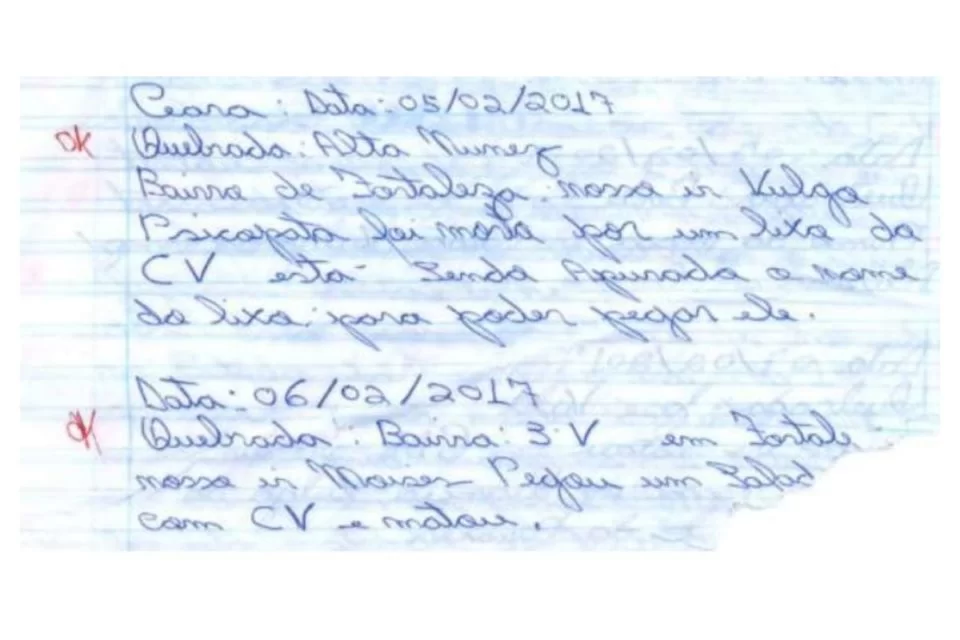 Ceara: Data: 05/02/2017
OK Quebrada: Alto Nunez
Bairro de Fortaleza. nosso ir Vulgo
Psicopata foi morto por um lixo do
CV esta Sendo Apurado o nome
do lixo para poder pegar ele.
Data: 06/02/2017
OK Quebrada: Bairro: 3 V em Fortale
nosso ir Moises Pegou um Safad
com CV e matou.